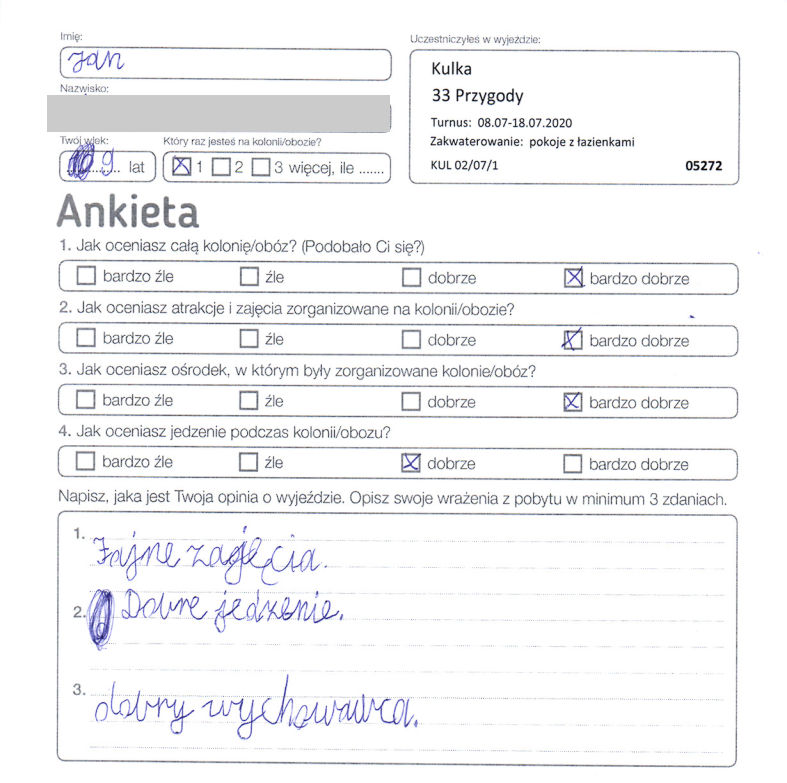 Imię:
Jan
Nazwisko:
Twój wiek:
9 lat
Który raz jesteś na kolonii/obozie?
1 2 3 więcej, ile .......
Uczestniczyłeś w wyjeździe:
Kulka
33 Przygody
Turnus: 08.07-18.07.2020
Zakwaterowanie: pokoje z łazienkami
KUL 02/07/1 05272
Ankieta
1. Jak oceniasz całą kolonię/obóz? (Podobało Ci się?)
bardzo źle źle dobrze bardzo dobrze
2. Jak oceniasz atrakcje i zajęcia zorganizowane na kolonii/obozie?
bardzo źle źle dobrze bardzo dobrze
3. Jak oceniasz ośrodek, w którym były zorganizowane kolonie/obóz?
bardzo źle źle dobrze bardzo dobrze
4. Jak oceniasz jedzenie podczas kolonii/obozu?
bardzo źle źle dobrze bardzo dobrze
Napisz, jaka jest Twoja opinia o wyjeździe. Opisz swoje wrażenia z pobytu w minimum 3 zdaniach.
1. Fajne zajęcia.
2. Dobre jedzenie.
3. dobry wychowawca.